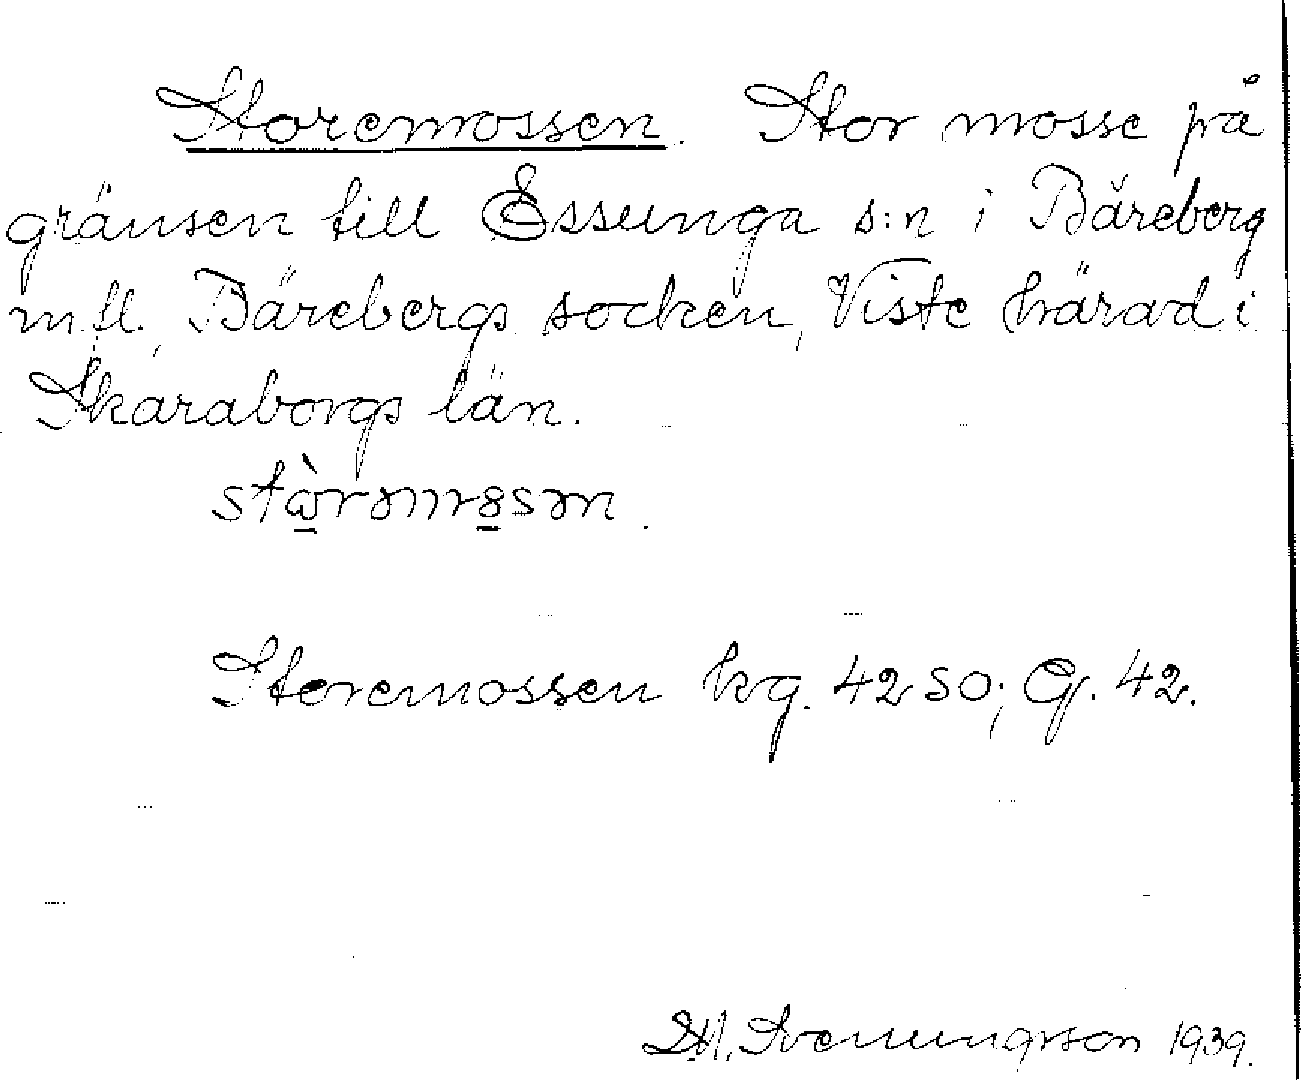 Storemossen. Stor mosse på
gränsen till Essunga s:n i Bäreberg
m.fl., Bärebergs socken, Viste härad i
Skaraborgs län.
Storemossen kg. 4250; G. 42.
Svenungsson 1939.